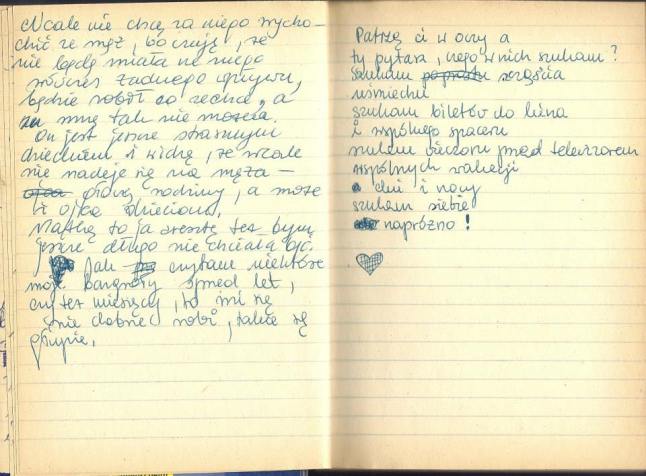 Wcale nie chcę za niego wycho-
dzić za mąż, bo czuję, że
nie będę miała na niego
wówczas żadnego wpływu,
będzie robił co zechce, a
ze mną tak nie można.
On jest jeszcze strasznym
dzieckiem i widzę, że wcale
nie nadaje się na męża –
głowę rodziny, a może
i ojca dzieciom.
Matką to ja zresztą też bym
jeszcze długo nie chciała być.
Jak czytam niektóre
moje bazgroły sprzed lat,
czy też miesięcy, to mi się
nie dobrze robi, takie są
głupie.
Patrzę ci w oczy a
ty pytasz, czego w nich szukam?
Szukam po prostu szczęścia
uśmiechu
szukam biletów do kina
i wspólnego spaceru
szukam wieczoru przed telewizorem
wspólnych wakacji
dni i nocy
szukam siebie
napróżno!